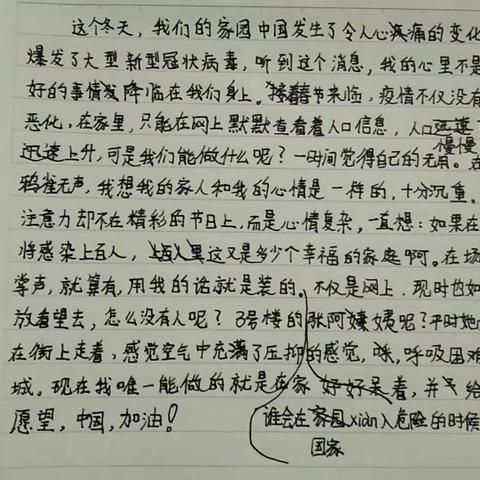 这个冬天，我们的家园中国发生了令人心疼痛的变化
爆发了大型新型冠状病毒，听到这个消息，我的心里不是
好的事情发降临在我们身上。接着春节来临，疫情不仅没有
恶化，在家里，只能在网上默默查看着人口信息，人口迅速
慢慢
迅速上升，可是我们能做什么呢？一瞬间觉得自己的无用。在
鸦雀无声，我想我的家人和我的心情是一样的，十分沉重。
注意力却不在精彩的节日上，而是心情复杂，一直想：如果在
将感染上百人，这又是多少个幸福的家庭啊。在场
掌声，就算有，用我的话就是装的。不仅是网上，现时也如
放看望去，怎么没有人呢？3号楼的张阿姨呢？平时她
在街上走着，感觉空气中充满了压抑的感觉，咳，呼吸困难
城。现在我唯一能做的就是在家好好呆着，并不给
愿望，中国，加油！
谁会在家园xiàn入危险的时候
国家